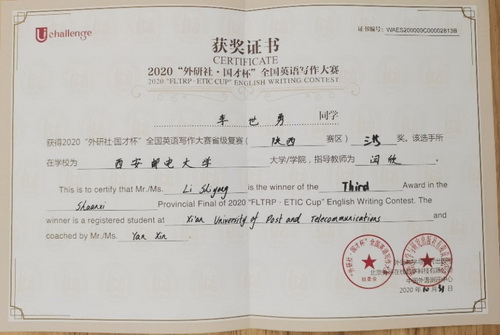 Uchallenge
证书编号：WAES200009C00002813B
获奖证书
CERTIFICATE
2020“外研社·国才杯”全国英语写作大赛
2020 "FLTRP · ETIC CUP" ENGLISH WRITING CONTEST
李世勇 同学
获得2020“外研社·国才杯”全国英语写作大赛省级复赛（陕西 赛区）三等 奖。该选手所
在学校为 西安邮电大学 大学/学院，指导教师为 闫欣
This is to certify that Mr./Ms. Li Shiyong is the winner of the Third Award in the
Shaanxi Provincial Final of 2020 "FLTRP · ETIC Cup" English Writing Contest. The
winner is a registered student at Xi'an University of Post and Telecommunications and
coached by Mr./Ms. Yan Xin
中国外语测评中心
2020年10月31日